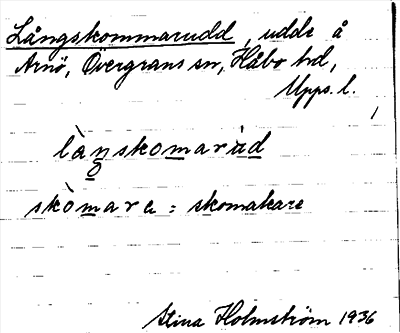 Långskommarudd, udde å
Arnö, Övergrans sn, Håbo hd,
Upps. l.
làŋ̥skomarùd
skòmara = skomakare
Stina Holmström 1936